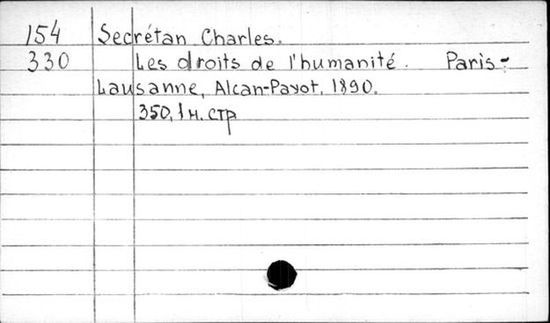 154 Secrétan Charles.
330 Les droits de l'humanité. Paris-
Lausanne, Alcan-Payot, 1890.
350, 1 н. стр